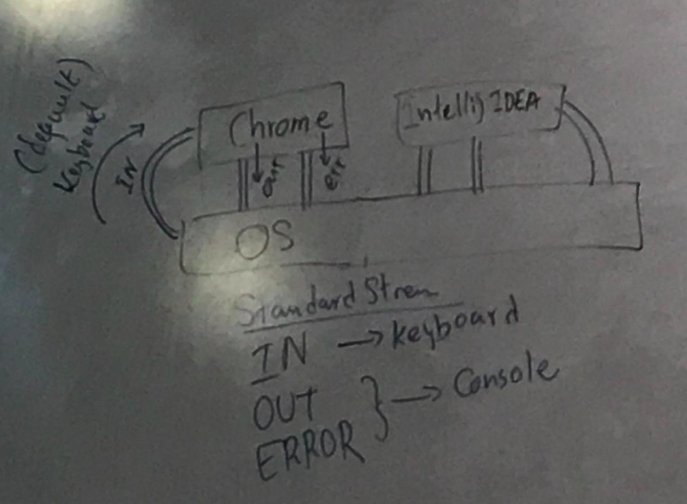 (default)
Keyboard
IN
Chrome
out
err
Intellij IDEA
OS
Standard Strem
IN → keyboard
OUT
ERROR } → Console